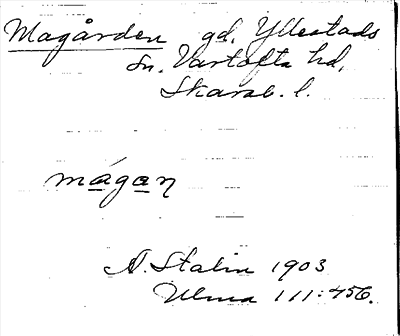 Magården gd, Yllestads
sn. Vartofta hd,
Skarab. l.
mágaŋ
N. Stalin 1903
Ulma 111:456.